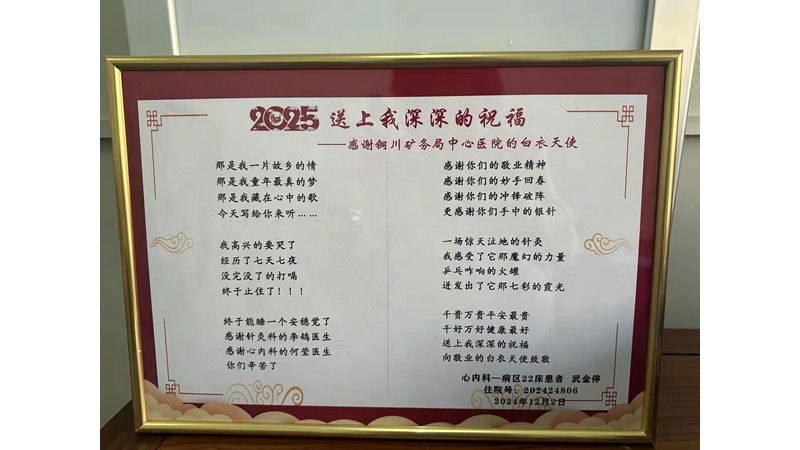 2025 送上我深深的祝福
——感谢铜川矿务局中心医院的白衣天使
那是我一片故乡的情
那是我童年最真的梦
那是我藏在心中的歌
今天写给你来听……
我高兴的要哭了
经历了七天七夜
没完没了的打嗝
终于止住了！！！
终于能睡一个安稳觉了
感谢针灸科的李鸽医生
感谢心内科的何莹医生
你们辛苦了
感谢你们的敬业精神
感谢你们的妙手回春
感谢你们的冲锋破阵
更感谢你们手中的银针
一场惊天泣地的针灸
我感受了它那魔幻的力量
乒乓咋响的火罐
迸发出了它那七彩的霞光
千贵万贵平安最贵
千好万好健康最好
送上我深深的祝福
向敬业的白衣天使致敬
心内科一病区22床患者 武金停
住院号：202424806
2024年12月2日